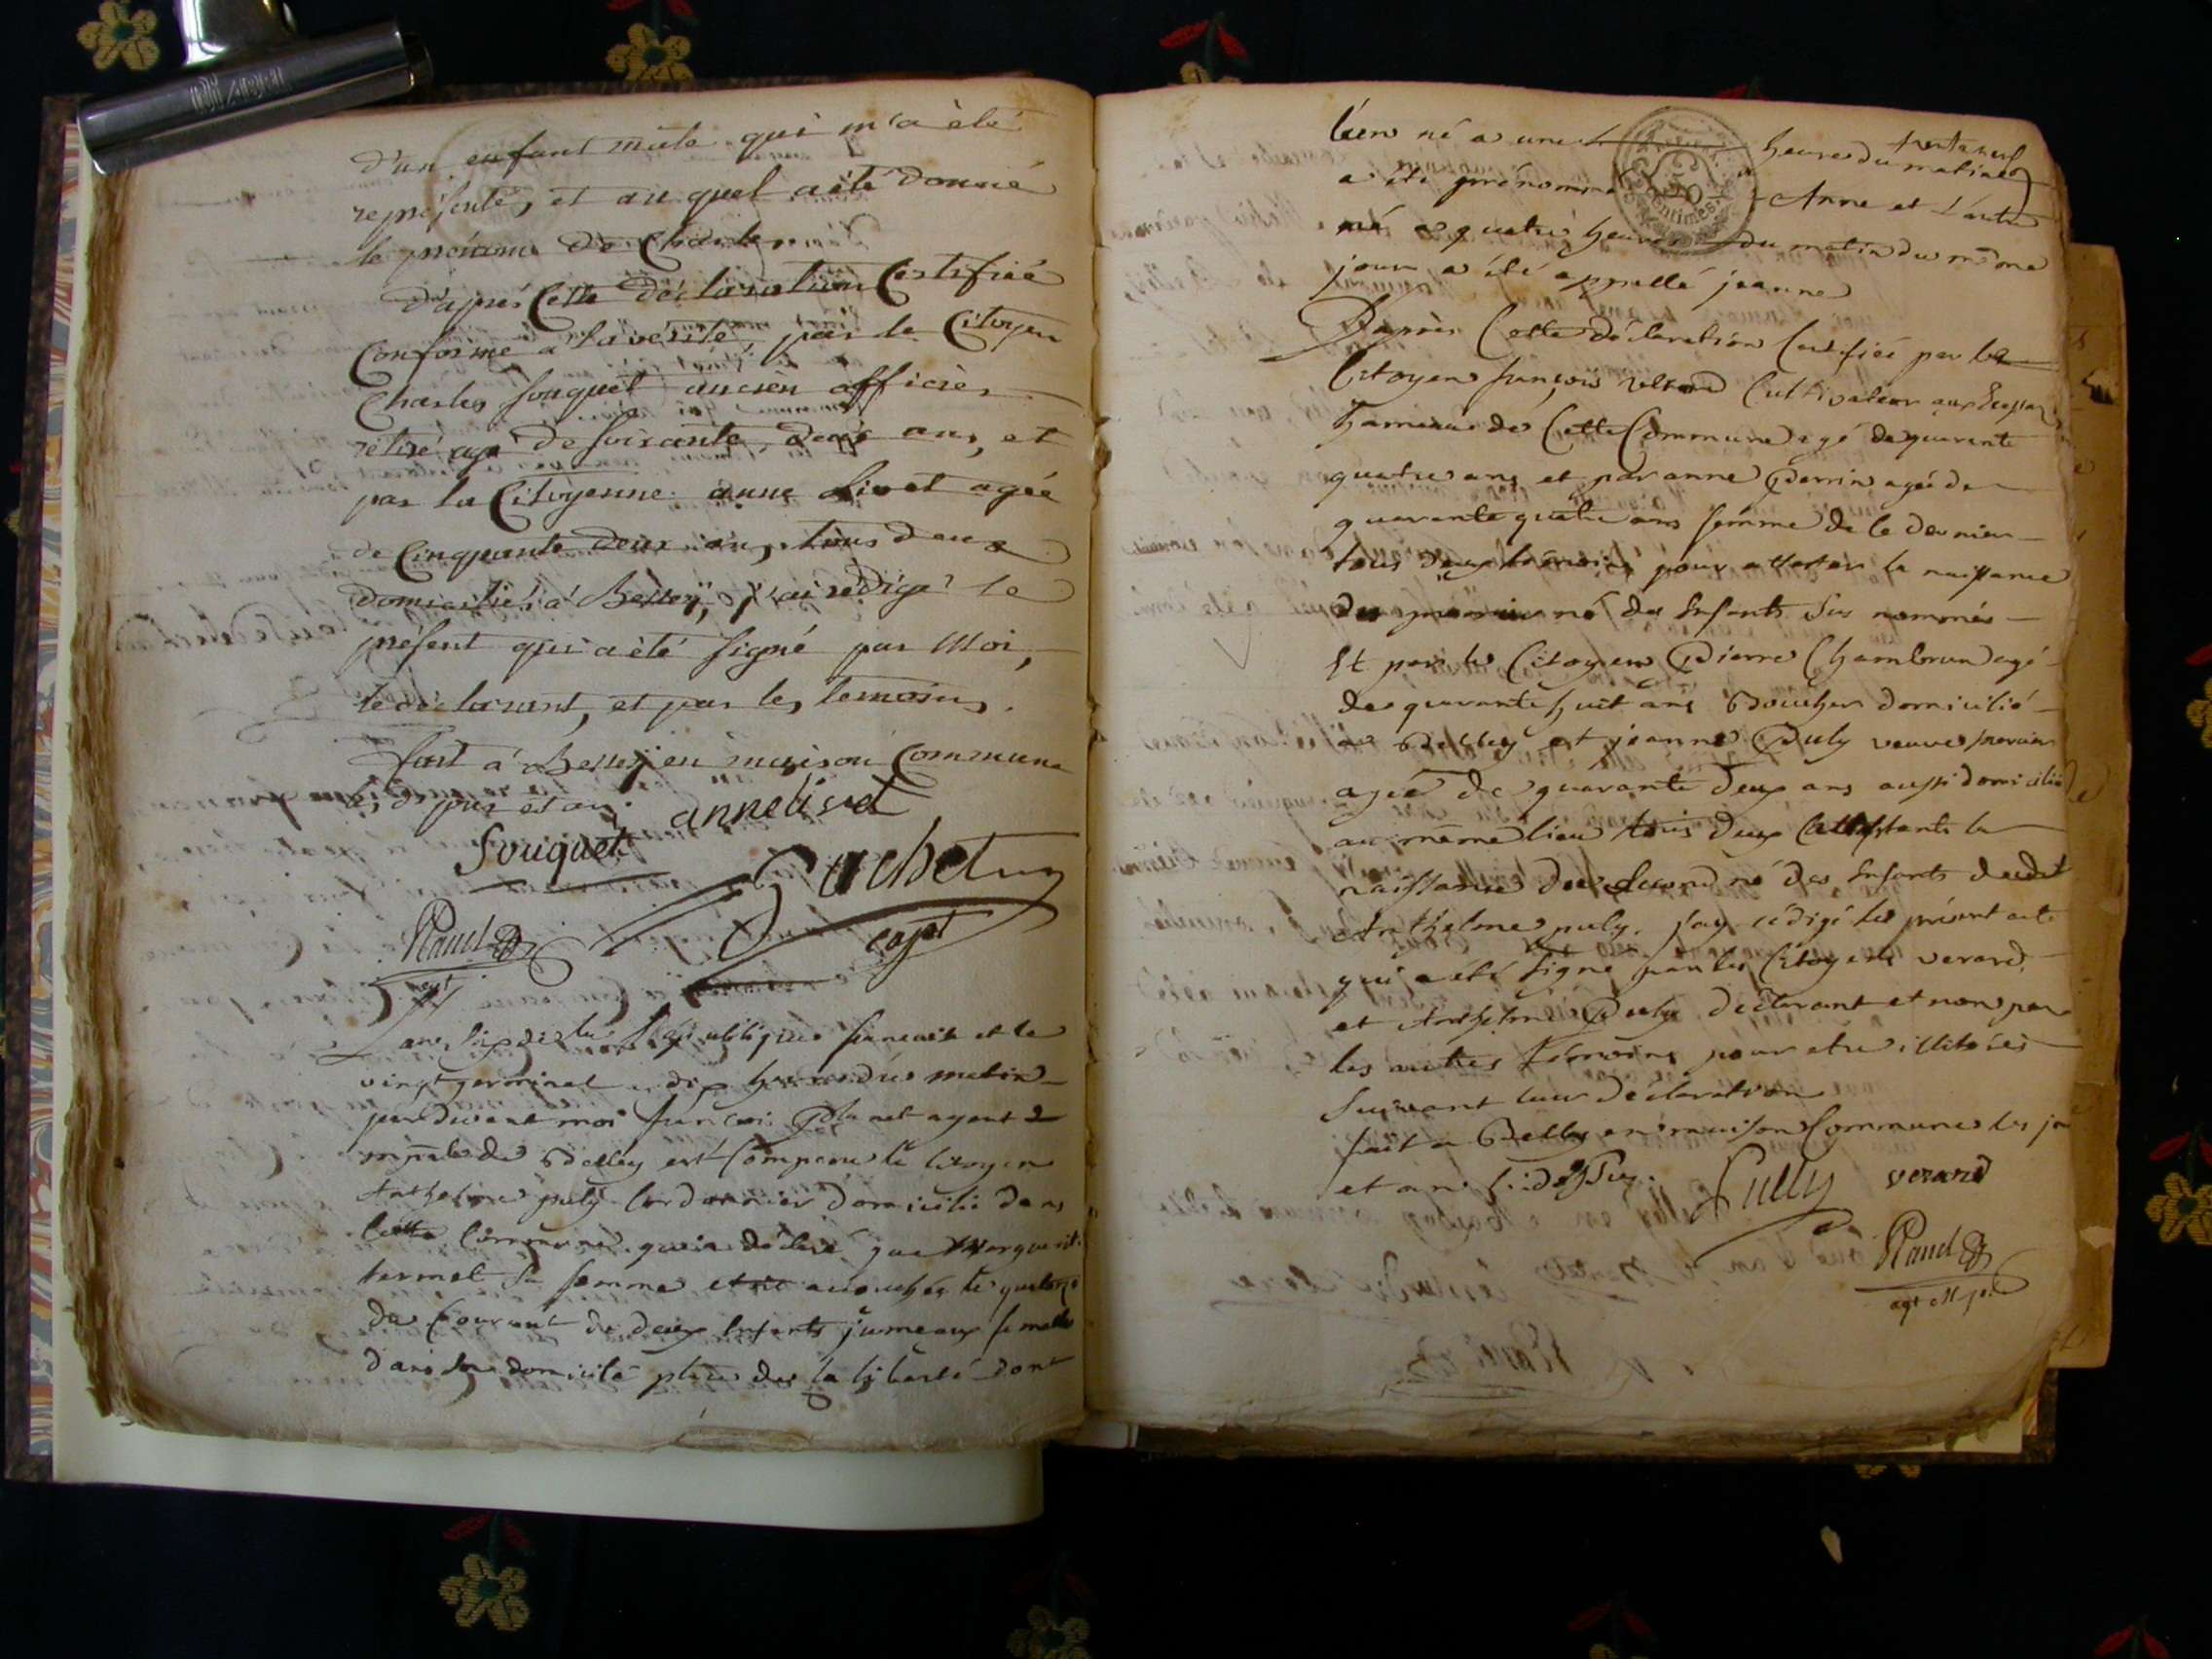 d'un enfant mâle qui m'a été
représenté, et au quel a été donné
le prénom de Charles
d'après Cette déclaration Certifiée
Conforme a la verité, par le Citoyen
Charles souquet ancien officier
retiré agé de soixante deux ans, et
par la Citoyenne anne livet agée
de Cinquante deux ans, tous deux
domiciliés a Belley, j'ai rédigé le
présent qui a été signé par Moi,
le déclarant, et par les temoins.
fait a Belley en maison Commune
les d jour et an
annelivet
Souquet
Gachet
capt
Rand
agt
L'an six de la Republique francaise et le
vingt germinal a dix heures du matin
par devant moi francois agent
mpale de Belley est Comparu le Citoyen
Anthelme puly Cordonnier domicilié dans
Cette Commune qui a déclaré que Marguerite
termet sa femme etoit accouchée le quatorze
du Courant de deux Enfants jumeaux femelle
dans son domicile place de la liberté dont
l'un né a une heures du matin
trente neuf
a été prénommé Anne et l'autre
50
Centimes
né a quatre heures du matin du même
jour a été appellé jeanne
D'après Cette déclaration Certifiée par le
Citoyen françois Cultivateur aux
hameau de Cette Commune agé de quarante
quatre ans et par anne Perrin agée de
quarante quatre ans femme de ce dernier
tous deux témoins pour attester la naissance
du premier né des Enfants sus nommés
Et par le Citoyen Pierre Chambrun agé
de quarante huit ans Boucher domicilié
a Belley et jeanne Puly veuve
agée de quarante deux ans aussi domiciliée
au même lieu tous deux attestants la
naissance du second né des Enfants dudit
Anthelme puly. j'ay rédigé le présent acte
qui a été signé par les Citoyens verard
et Anthelme Puly déclarant et non par
les autres témoins pour etre illiterés
suivant leur déclaration
fait a Belley en maison Commune les jo
et an s. dessus.
Pully
verard
Rand
agt Mpl.